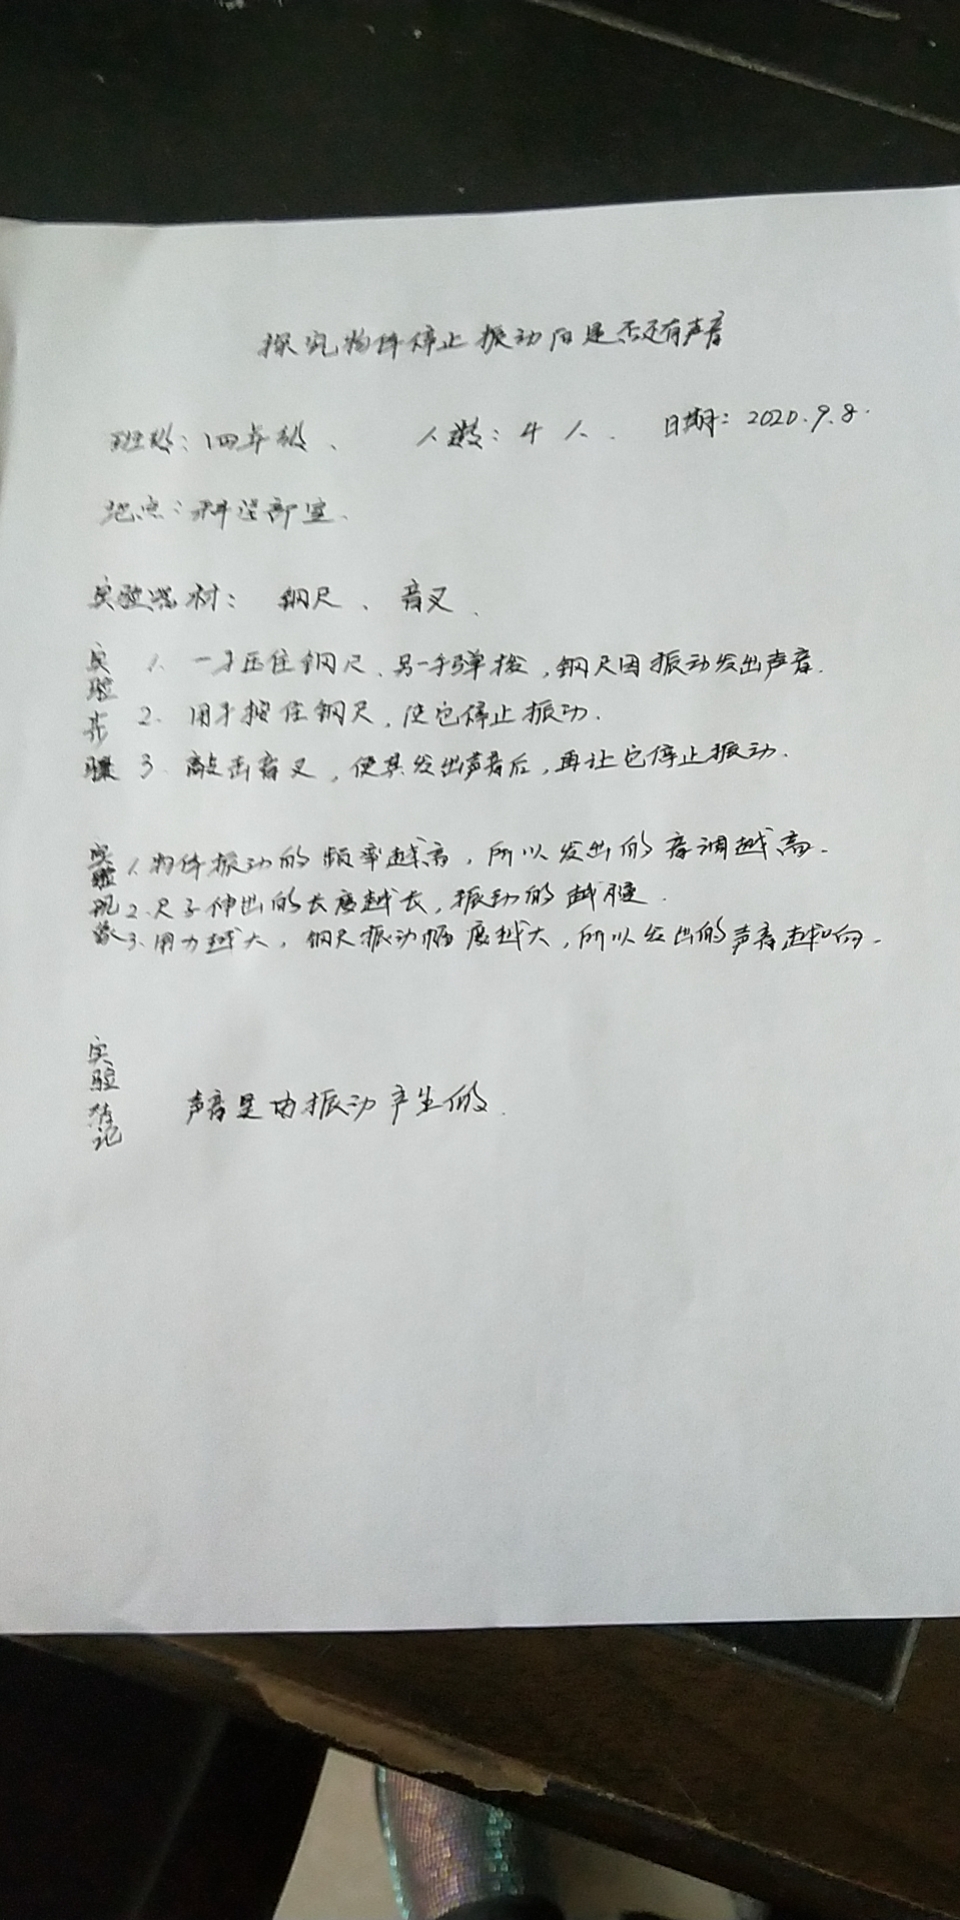 探究物体停止振动后是否还有声音
班级:四年级、 人数:4人. 日期:2020.9.8.
地点:科学部室.
实验器材: 钢尺、音叉.
实验步骤
1. 一手压住钢尺、另一手弹拨,钢尺因振动发出声音.
2. 用手按住钢尺,使它停止振动.
3. 敲击音叉,使其发出声音后,再让它停止振动.
实验现象
1.物体振动的频率越高,所以发出的音调越高.
2.尺子伸出的长度越长,振动的越慢.
3.用力越大,钢尺振动幅度越大,所以发出的声音越响.
实验
记
声音是由振动产生的.